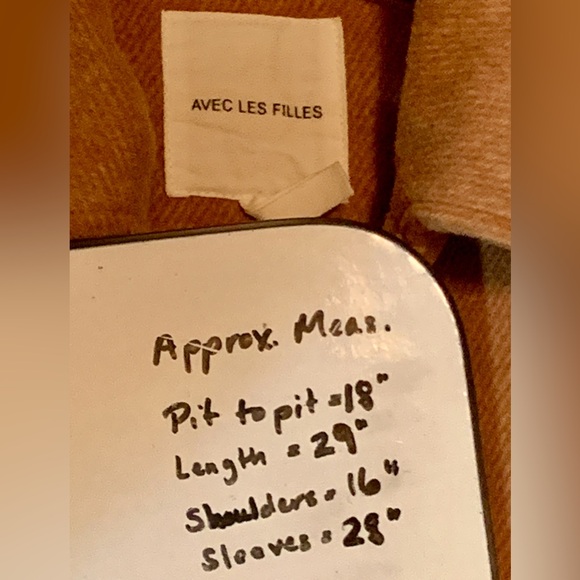 AVEC LES FILLES
Approx. Meas.
Pit to pit = 18"
Length = 29"
Shoulders = 16"
Sleeves = 28"